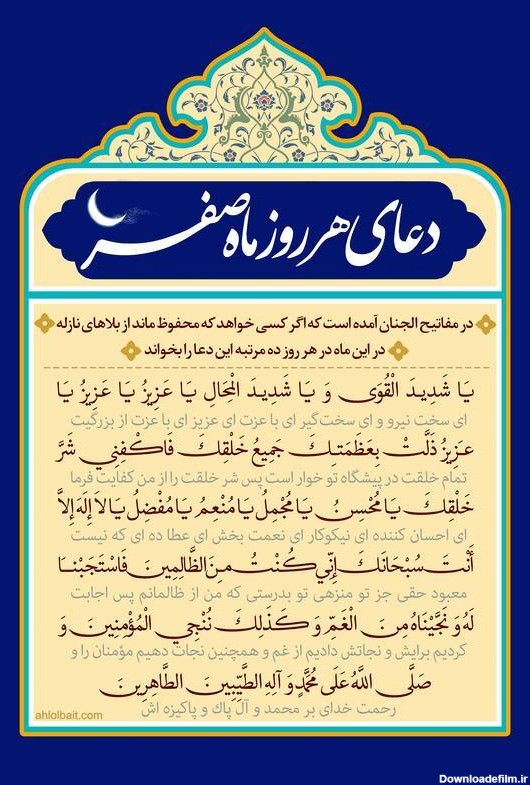 دعای هر روز ماه صفر
در مفاتیح الجنان آمده است که اگر کسی خواهد که محفوظ ماند از بلاهای نازله
در این ماه در هر روز ده مرتبه این دعا را بخواند
يَا شَدِيدَ الْقُوَى وَ يَا شَدِيدَ الْمِحَالِ يَا عَزِيزُ يَا عَزِيزُ يَا
ای سخت نیرو و ای سخت‌گیر ای با عزت ای عزیز ای با عزت از بزرگیت
عَزِيزُ ذَلَّتْ بِعَظَمَتِكَ جَمِيعُ خَلْقِكَ فَاكْفِنِي شَرَّ
تمام خلقت در پیشگاه تو خوار است پس شر خلقت را از من کفایت فرما
خَلْقِكَ يَا مُحْسِنُ يَا مُجْمِلُ يَا مُنْعِمُ يَا مُفْضِلُ يَا لَا إِلَهَ إِلَّا
ای احسان کننده ای نیکوکار ای نعمت بخش ای عطا ده ای که نیست
أَنْتَ سُبْحَانَكَ إِنِّي كُنْتُ مِنَ الظَّالِمِينَ فَاسْتَجَبْنَا
معبود حقی جز تو منزهی تو بدرستی که من از ظالمانم پس اجابت
لَهُ وَ نَجَّيْنَاهُ مِنَ الْغَمِّ وَ كَذَلِكَ نُنْجِي الْمُؤْمِنِينَ وَ
کردیم برایش و نجاتش دادیم از غم و همچنین نجات دهیم مؤمنان را و
صَلَّى اللَّهُ عَلَى مُحَمَّدٍ وَ آلِهِ الطَّيِّبِينَ الطَّاهِرِينَ
رحمت خدای بر محمد و آل پاك و پاکیزه اش
ahlolbait.com
Downloadefilm.ir